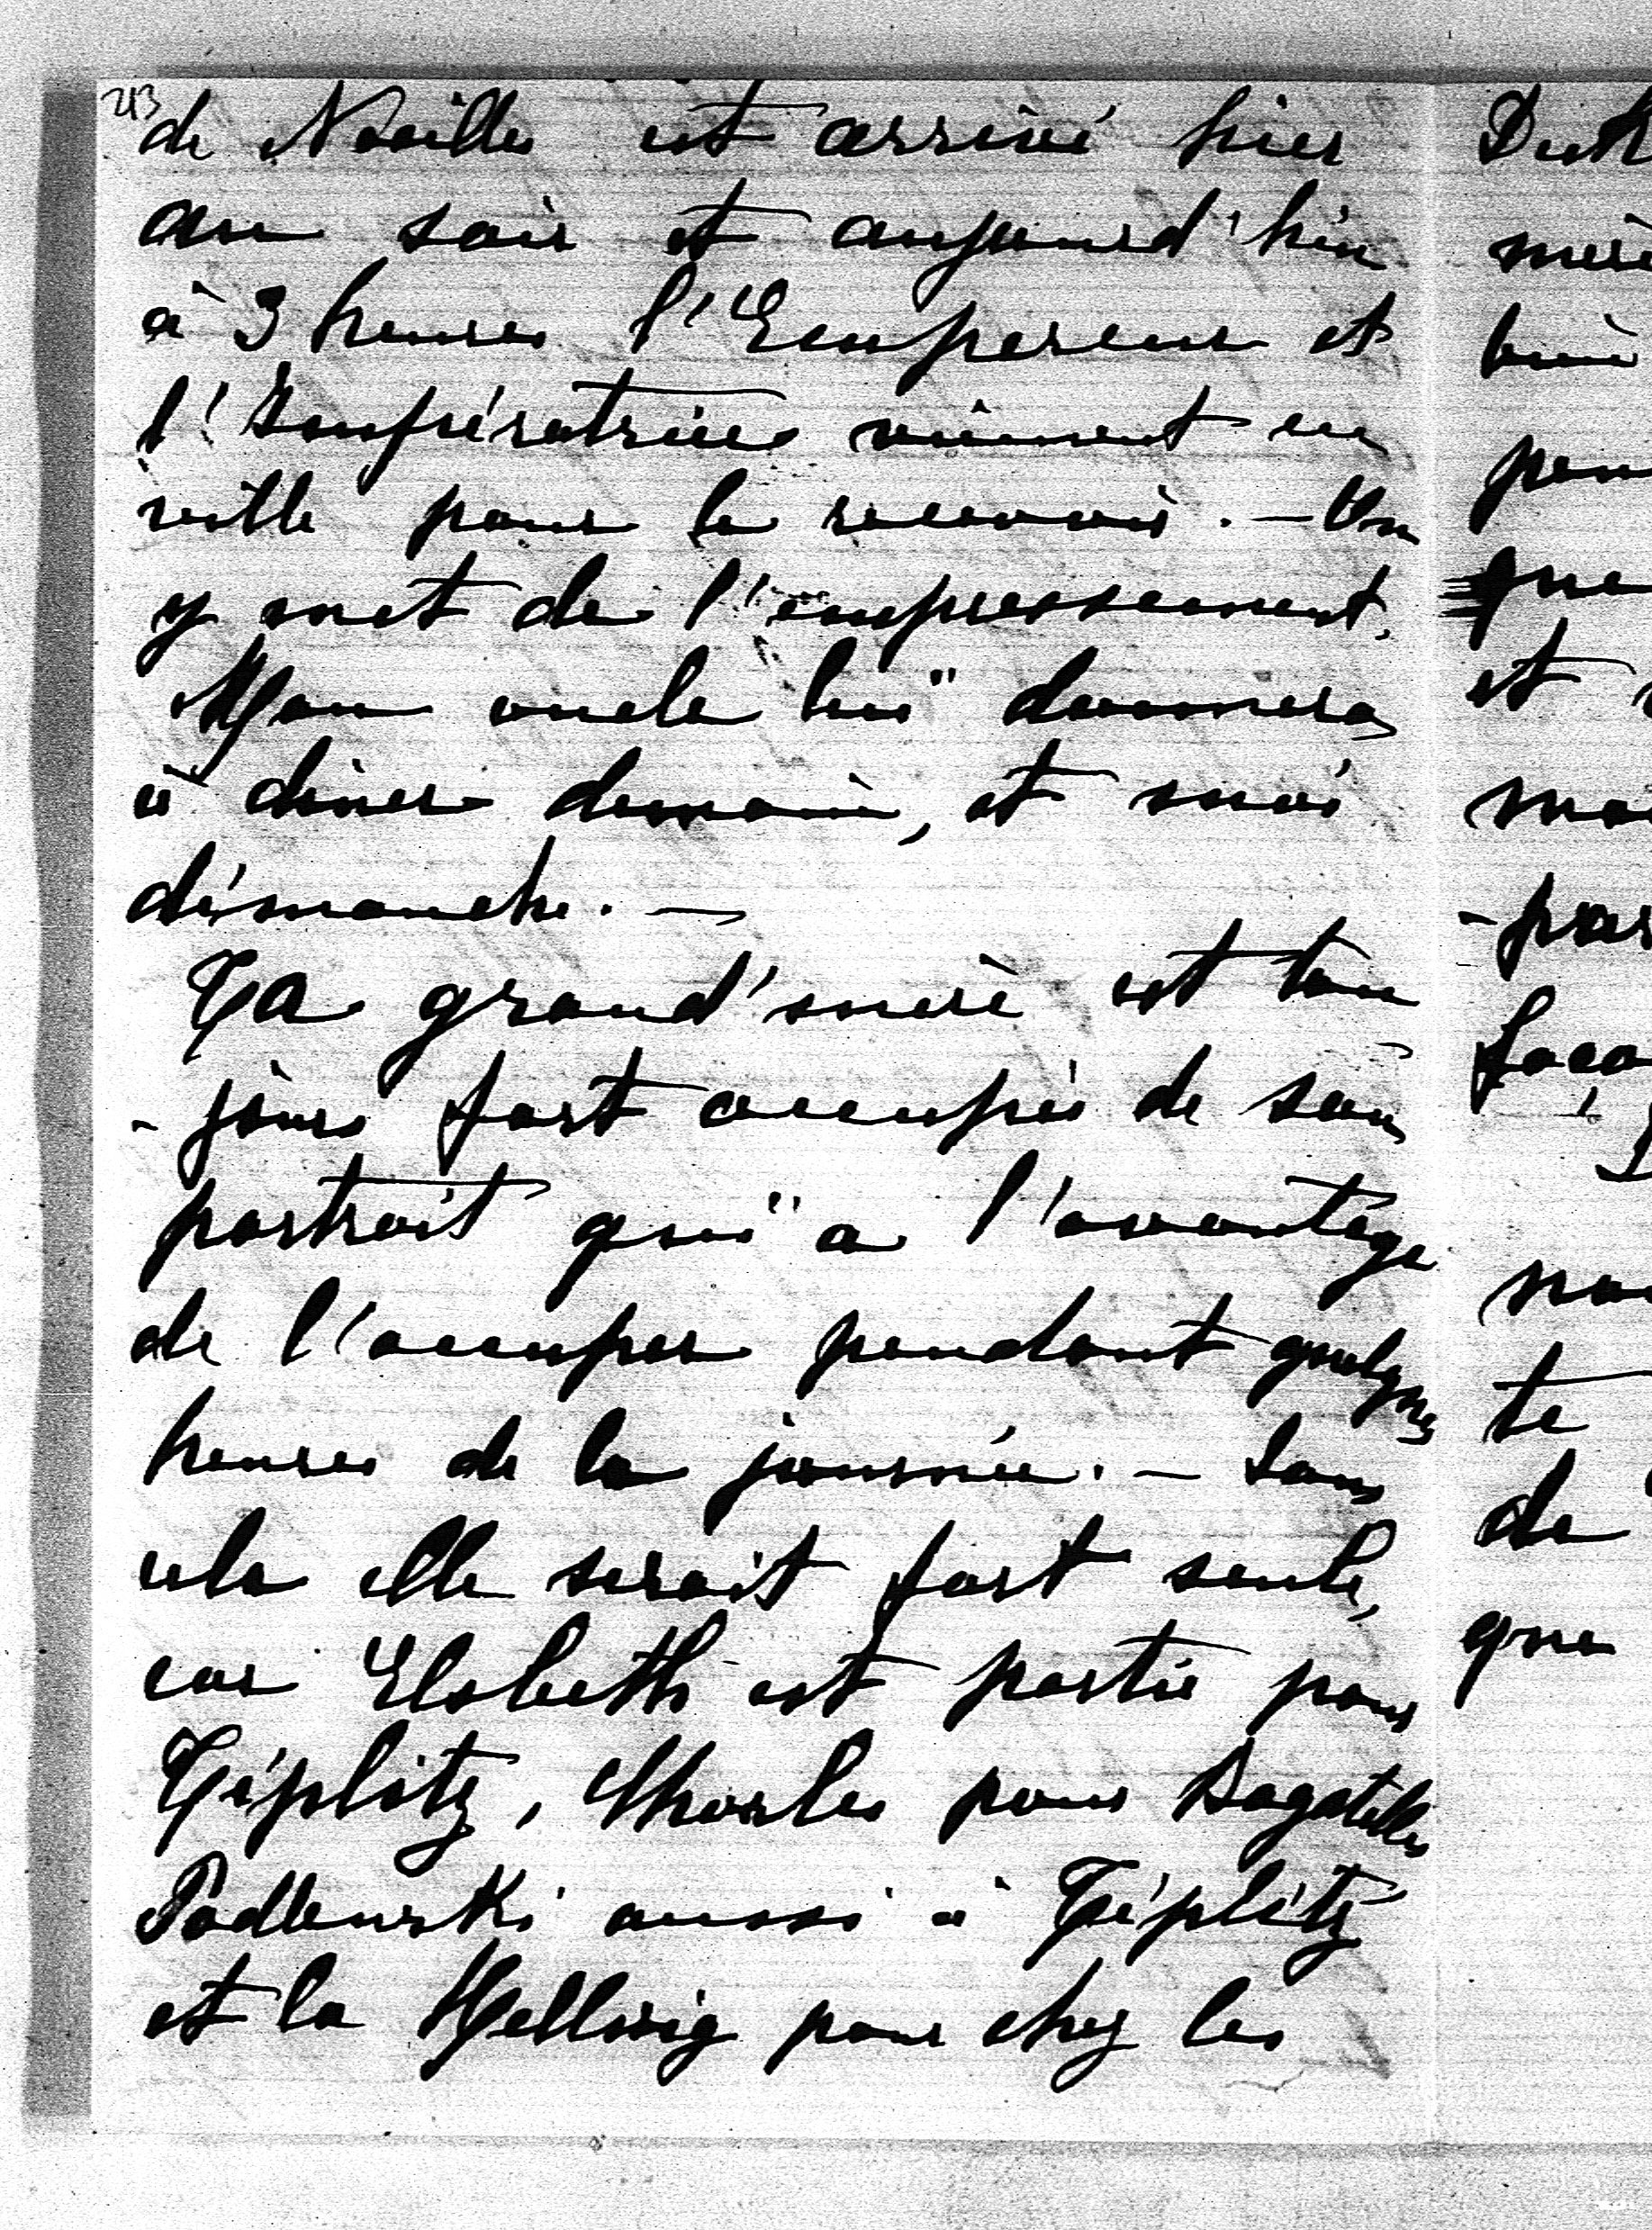 213
de Noailles est arrivé hier
au soir et aujourd'hui
à 3 heures l'Empereur et
l'Impératrice viennent en
ville pour le recevoir. — On
y met de l'empressement.
Mon oncle lui donnera
à diner demain, et moi
dimanche. —
Ta grand'mère est tou
- jours fort occupée de son
portrait qui a l'avantage
de l'occuper pendant quelques
heures de la journée. — Sans
cela elle serait fort seule,
car Elsbeth est partie pour
Téplitz, Charles pour Bagatelle
Podlewski aussi à Téplitz
et la Hellwig pour chez les
et
te
de
que